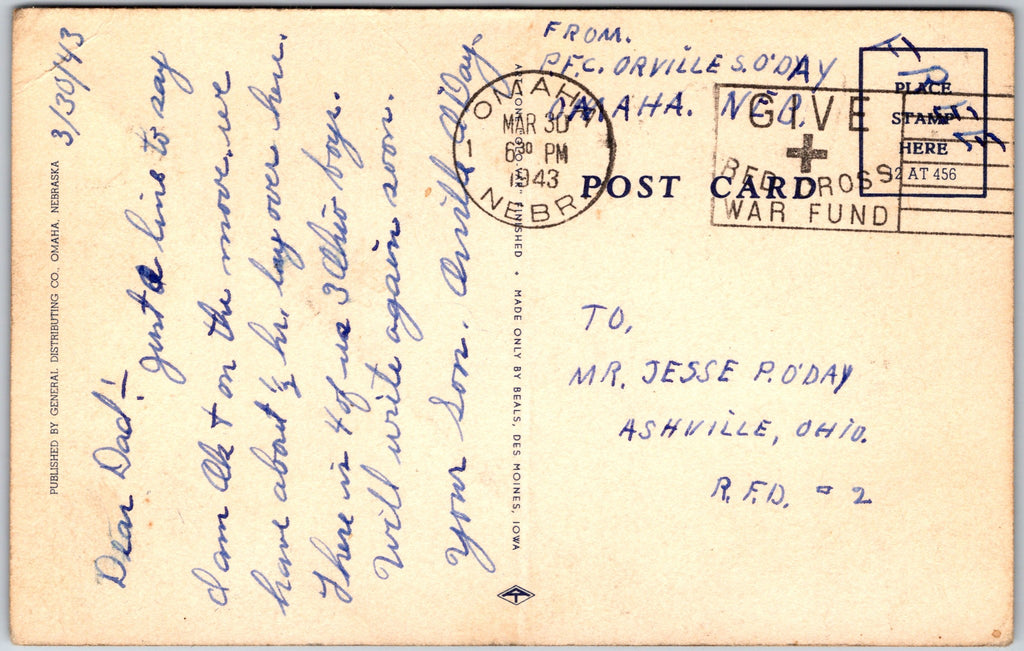 3/30/43
Dear Dad:—
Just a line to say
I am Ok & on the move. we
have about ½ hr. lay over here.
There is 4 of us 3 Ohio boys.
Will write again soon.
Your Son. Orville O'Day.
PUBLISHED BY GENERAL DISTRIBUTING CO., OMAHA, NEBRASKA
FINISHED • MADE ONLY BY BEALS, DES MOINES, IOWA
FROM.
PFC. ORVILLE S. O'DAY
OMAHA. NEB.
OMAHA
1
MAR 30
6 30 PM
1943
NEBR.
GIVE
RED CROSS
WAR FUND
PLACE
STAMP
HERE
2 AT 456
POST CARD
TO,
MR. JESSE P. O'DAY
ASHVILLE, OHIO.
R.F.D. # 2